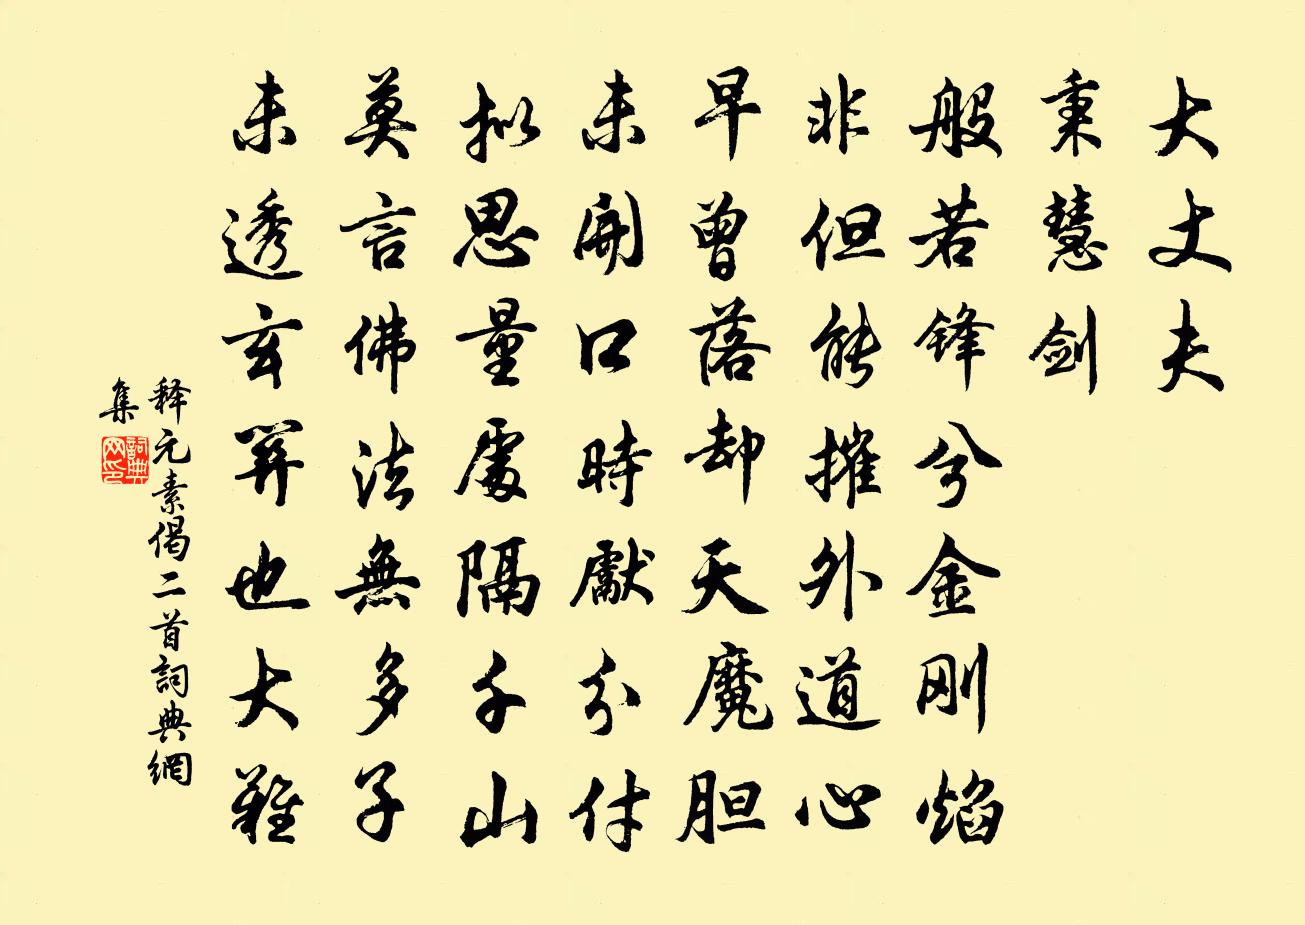 大丈夫
秉慧剑
般若锋兮金刚焰
非但能摧外道心
早曾落却天魔胆
未开口时献分付
拟思量处隔千山
莫言佛法無多子
未透玄关也大难
释元素偈二首詞典網
集
詞典网印